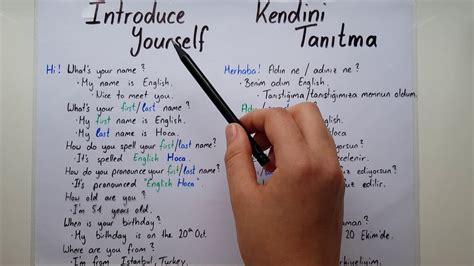 Introduce
Yourself
Hi! What's your name?
· My name is English.
Nice to meet you.
What's your first/last name?
· My first name is English.
· My last name is Hoca.
How do you spell your first/last name?
· It's spelled English Hoca
How do you pronounce your first/last name?
· It's pronounced "English Hoca".
How old are you?
· I'm years old.
When is your birthday?
· My birthday is on the 20th Oct.
Where are you from?
· I'm from Istanbul, Turkey.
Kendini
Tanıtma
Merhaba! Adın ne / adınız ne?
· Benim adım English.
· Tanıştığıma/tanıştığımıza memnun oldum.
edilir.
20 Ekim'de.